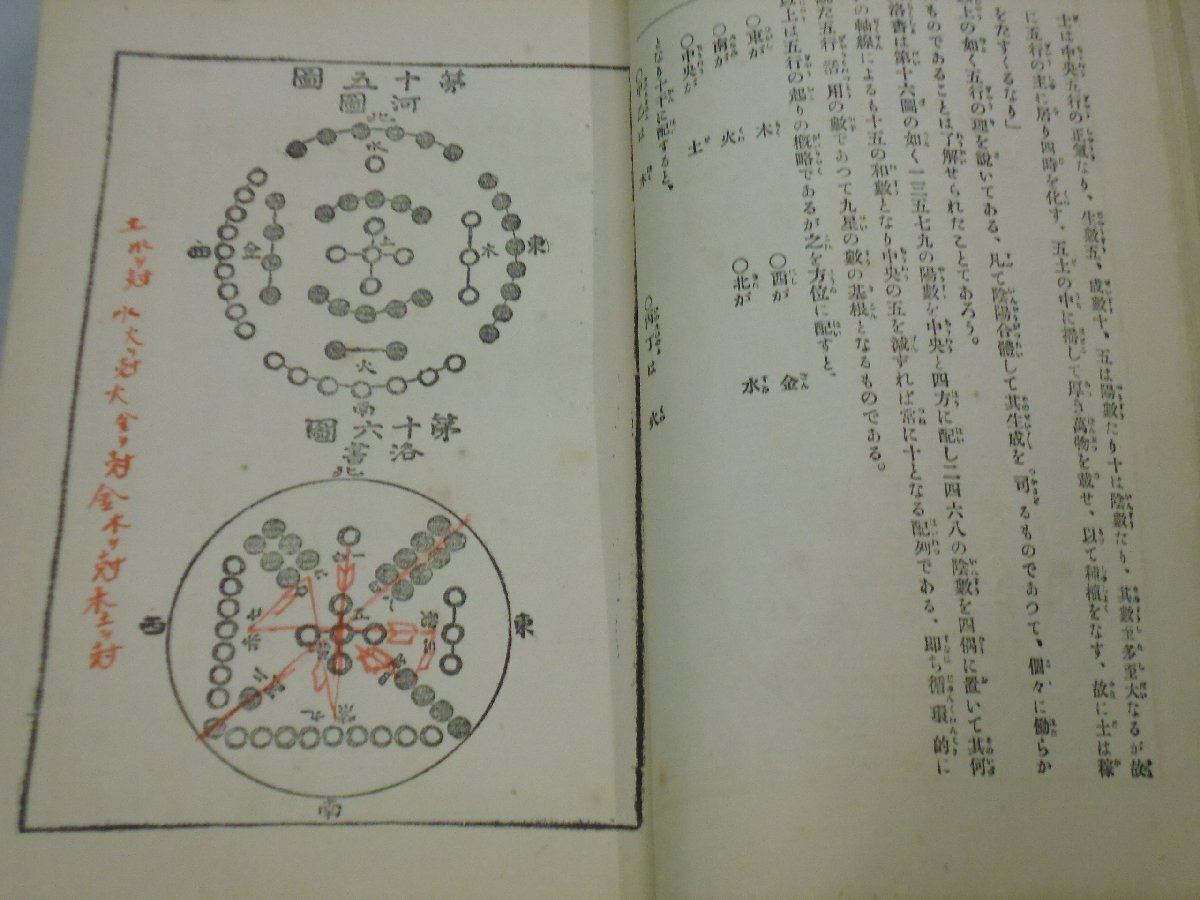 土は中央五行の正氣たり、生數五、成數十、五は陽數たり十は陰數たり、其數至多至大なるが故
に五行の主に居り四時を化す、五土の中に播して厚き萬物を載せ、以て種植をなす、故に土は稼
をたすくるなり」
上の如く五行の理を說いてある、凡て陰陽合體して其生成を司るものであつて、個々に働らか
ものであることは了解せられたことてあろう。
洛書は第十六圖の如く一三五七九の陽數を中央と四方に配し二四六八の陰數を四偶に置いて其何
の軸線によるも十五の和數となり中央の五を減ずれば常に十となる配列である、即ち循環的に
五行活用の數であつて九星の數の基根となるものである。
以上は五行の起りの概略であるが之を方位に配すと、
○東が 木
○西が 金
○南が 火
○北が 水
○中央が 土
となり十干に配すると、
は 木
は 火
第十五圖
河圖
北
水
東
木
土
金
西
火
南
第十六圖
洛書
北
東
西
南
一
三
五
九
土水ヲ対 水火ヲ対 火金ヲ対 金木ヲ対 木土ヲ対